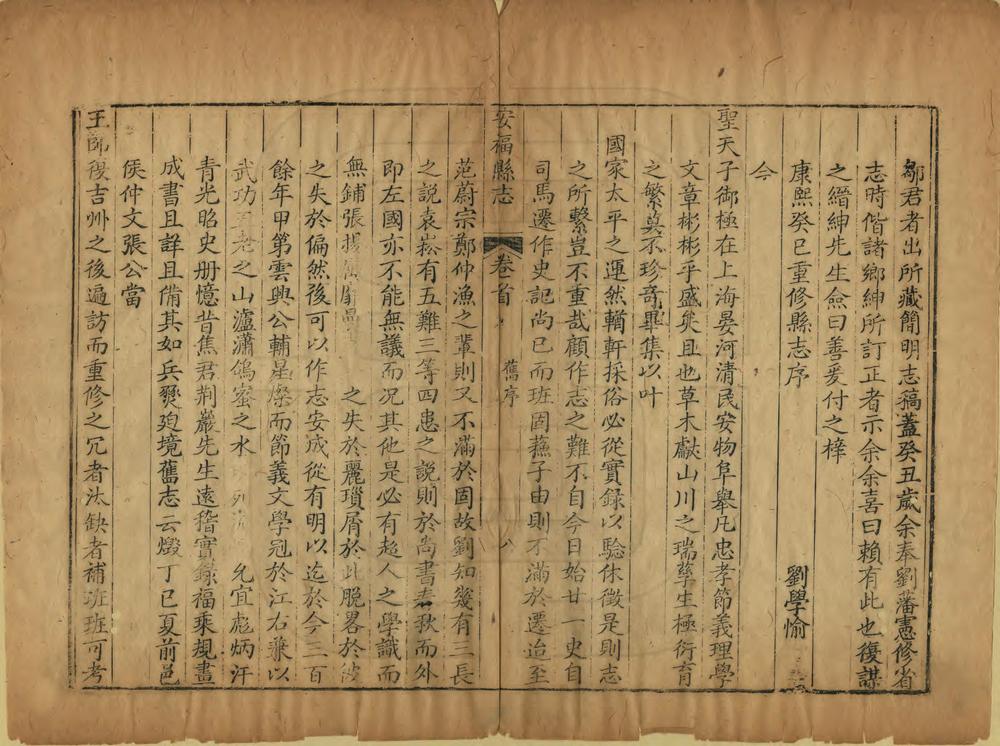 鄒君者出所藏簡明志稿蓋癸丑歲余奉劉藩憲修省
志時偕諸鄉紳所訂正者示余余喜曰賴有此也復謀
之縉紳先生僉曰善爰付之梓
康熙癸巳重修縣志序
劉學愉
今
聖天子御極在上海晏河清民安物阜舉凡忠孝節義理學
文章彬彬乎盛矣且也草木獻山川之瑞孳生極衍育
之繁莫不珍奇畢集以叶
國家太平之運然輶軒採俗必從實録以驗休徵是則志
之所繫豈不重哉顧作志之難不自今日始廿一史自
司馬遷作史記尚已而班固蘓子由則不滿於遷迨至
安福縣志
卷首
舊序
八
范蔚宗鄭仲漁之輩則又不滿於固故劉知幾有三長
之說袁崧有五難三等四患之說則於尚書春秋而外
即左國亦不能無議而况其他是必有超人之學識而
無鋪張揚 之失於麗瑣屑於此脫畧於彼
之失於偏然後可以作志安成從有明以迄於今三百
餘年甲第雲興公輔星燦而節義文學冠於江右兼以
武功 之山瀘瀟鴿蜜之水 允宜彪炳汗
青光昭史册憶昔焦君荆巖先生遠稽實録福乘規畫
成書且詳且備其如兵燹廹境舊志云燬丁巳夏前邑
侯仲文張公當
王師復吉州之後遍訪而重修之冗者汰缺者補班班可考